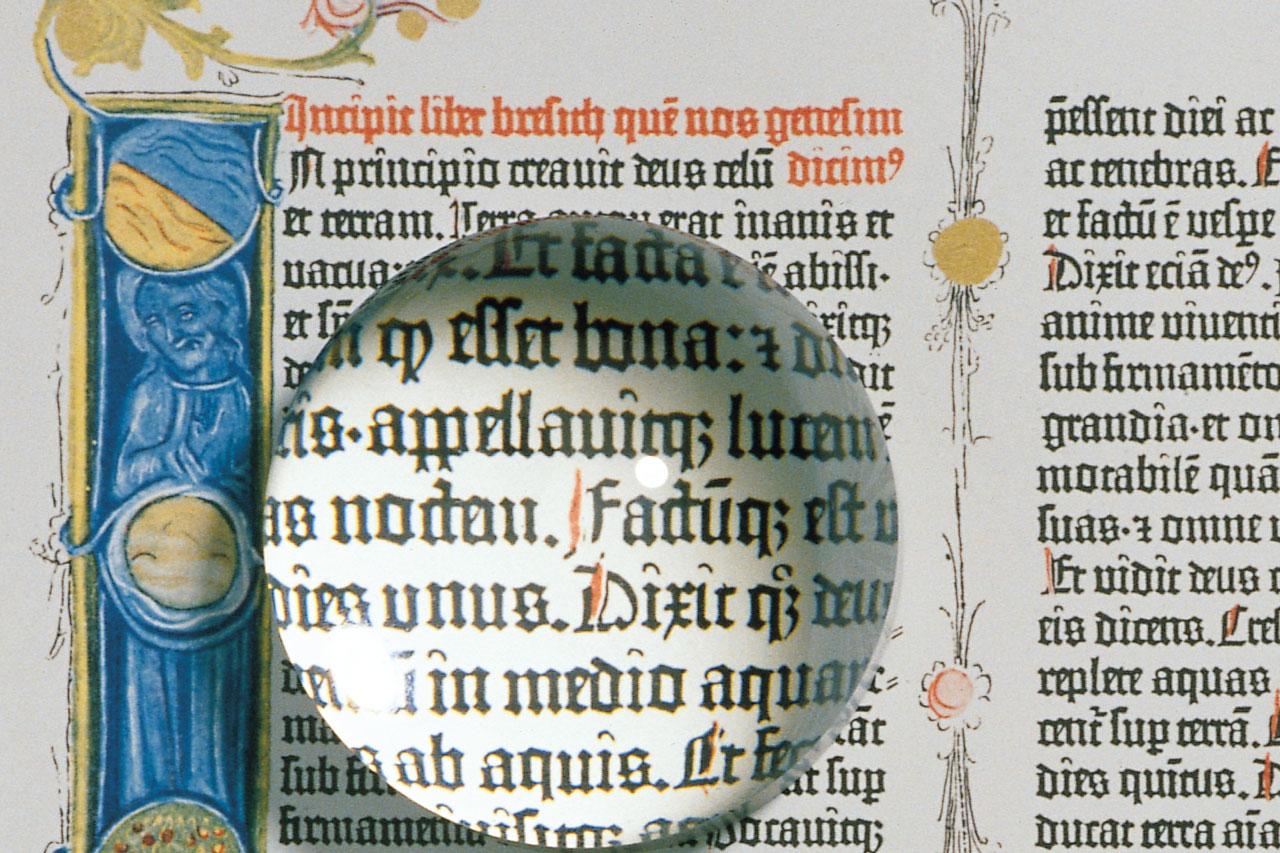 Incipit liber bresith quē nos genesim
In principio creauit deus celū dicimꝰ
et terram. Terra autem erat inanis et
uacua: ie abissi·
et sp̄
Et facta e
m qͥ esset bona: ⁊ di
ris·appellauitqꝫ lucem
as noctem. Factūqꝫ est v
dies vnus. Dixit qꝫ deu
in medio aquar
s ab aquis. Et fec
sub fir at sup
firmamentū ocauitqꝫ
p̄essent diei ac
ac tenebras. E
et factū ē vespe
Dixit eciā deꝰ.
anime viuenti
sub firmamēto
grandia·et om
motabilē quā
suas·⁊ omne v
Et vidit deus q
eis dicens. Cre
replete aquas
cent̄ sup terrā.
dies quītus. D
ducat terra aīa